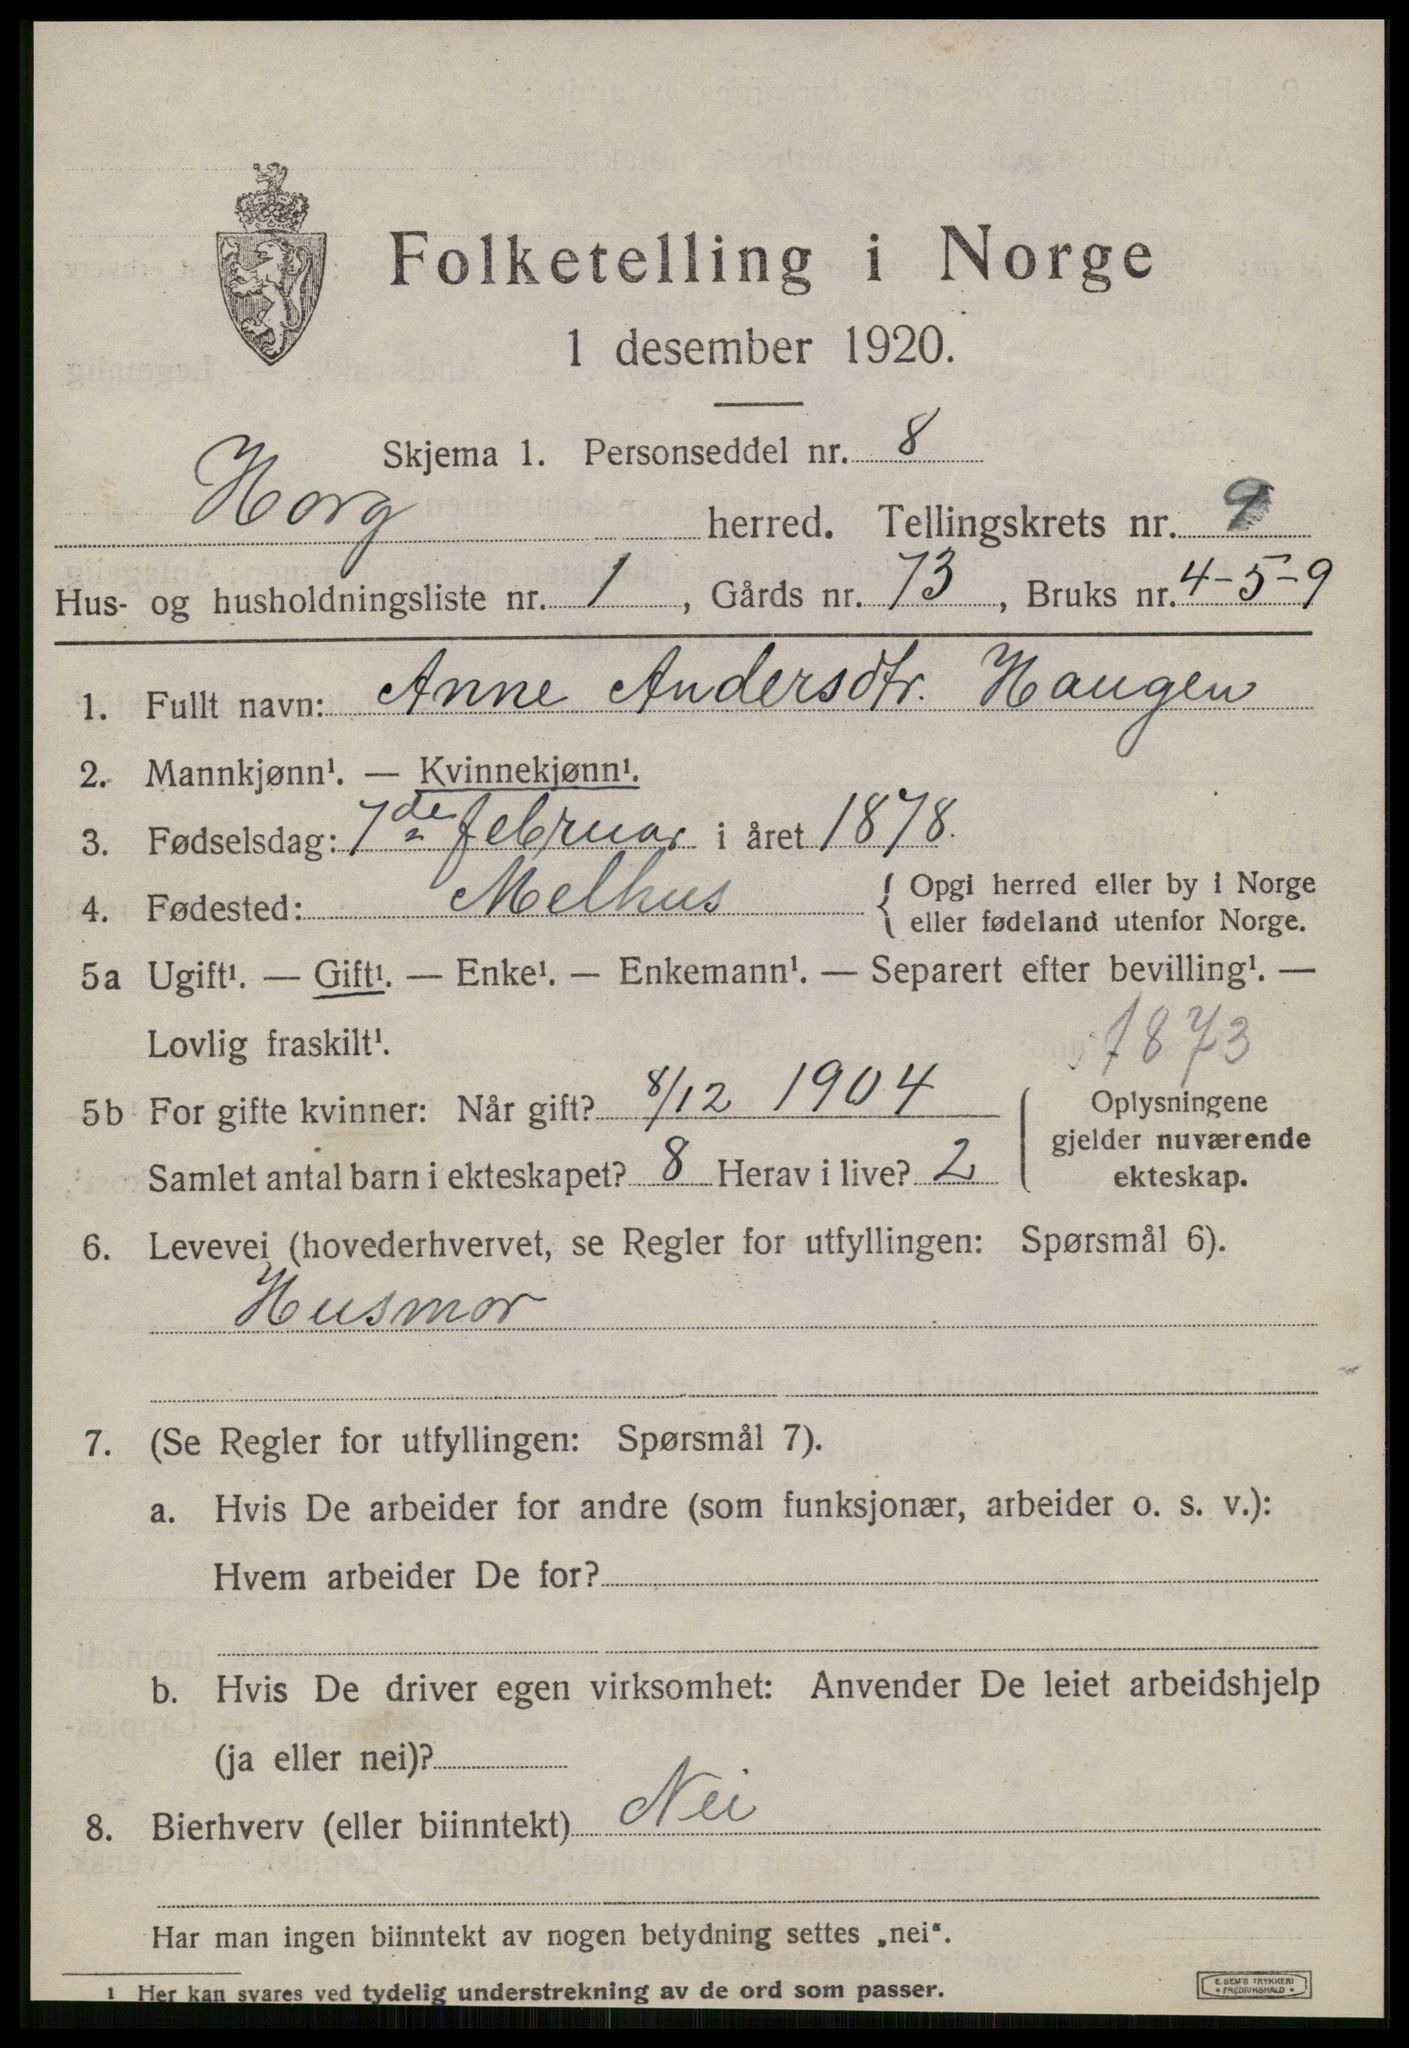 Folketelling i Norge
1 desember 1920.
Skjema 1. Personseddel nr. 8
Horg herred. Tellingskrets nr. 9
Hus- og husholdningsliste nr. 1, Gårds nr. 73, Bruks nr. 4-5-9
1. Fullt navn: Anne Andersdtr. Haugen
2. Mannkjønn¹. — Kvinnekjønn¹.
3. Fødselsdag: 7de februar i året 1878.
4. Fødested: Melhus { Opgi herred eller by i Norge
eller fødeland utenfor Norge.
5a Ugift¹. — Gift¹. — Enke¹. — Enkemann¹. — Separert efter bevilling¹. —
Lovlig fraskilt¹.
1873
5b For gifte kvinner: Når gift? 8/12 1904
Samlet antal barn i ekteskapet? 8 Herav i live? 2
Oplysningene
gjelder nuværende
ekteskap.
6. Levevei (hovederhvervet, se Regler for utfyllingen: Spørsmål 6).
Husmor
7. (Se Regler for utfyllingen: Spørsmål 7).
a. Hvis De arbeider for andre (som funksjonær, arbeider o. s. v.):
Hvem arbeider De for?
b. Hvis De driver egen virksomhet: Anvender De leiet arbeidshjelp
(ja eller nei)?
8. Bierhverv (eller biinntekt) Nei
Har man ingen biinntekt av nogen betydning settes „nei“.
1 Her kan svares ved tydelig understrekning av de ord som passer.
E. SEM'S TRYKKERI
FREDRIKSHALD